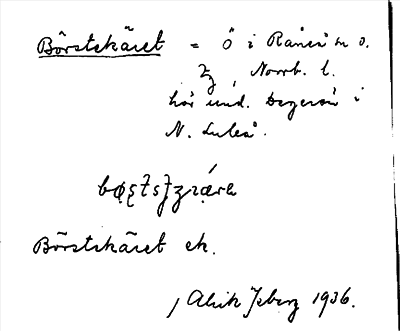 Börstskäret = Ö i Råneå sn o.
Norrb. l.
hör und. Degerön i
N. Luleå.
Börstskäret ek.
Alrik Ysberg 1936.